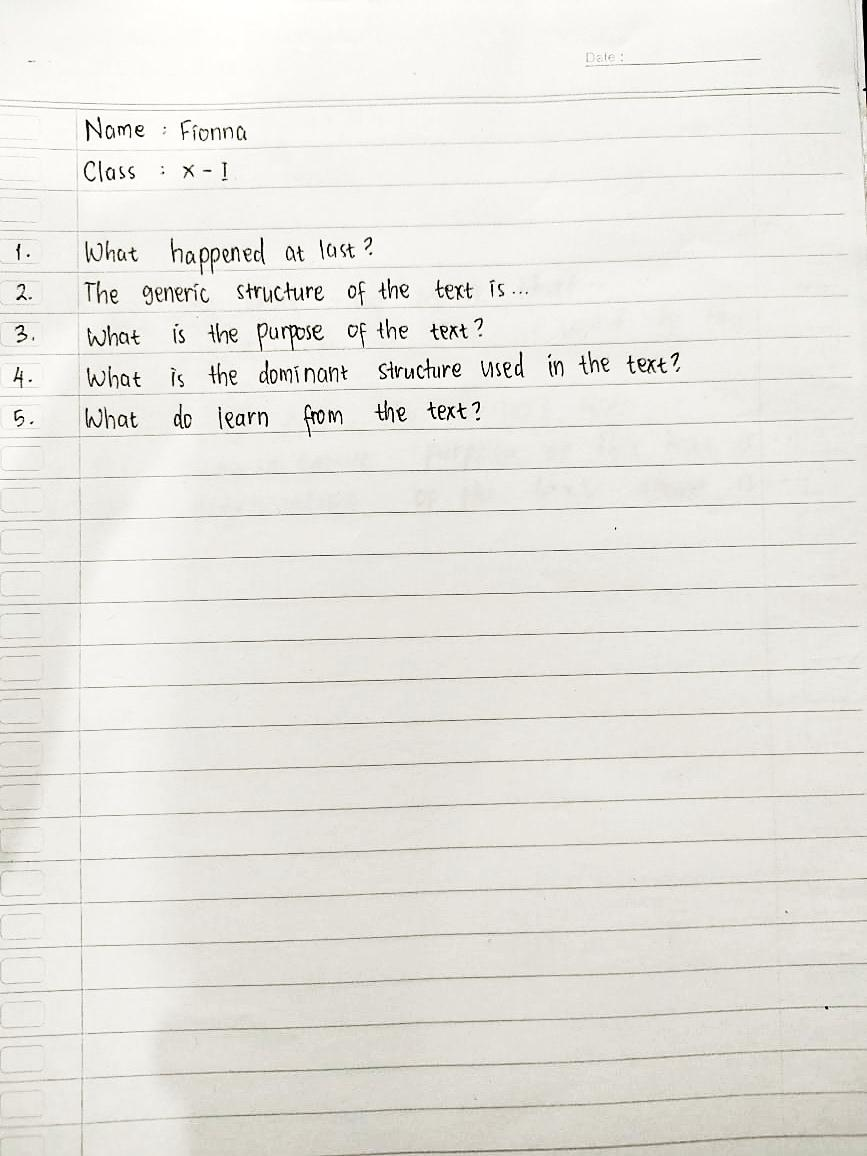 Date :
Name : Fionna
Class : X - I
1. What happened at last?
2. The generic structure of the text is...
3. What is the purpose of the text?
4. What is the dominant structure used in the text?
5. What do learn from the text?